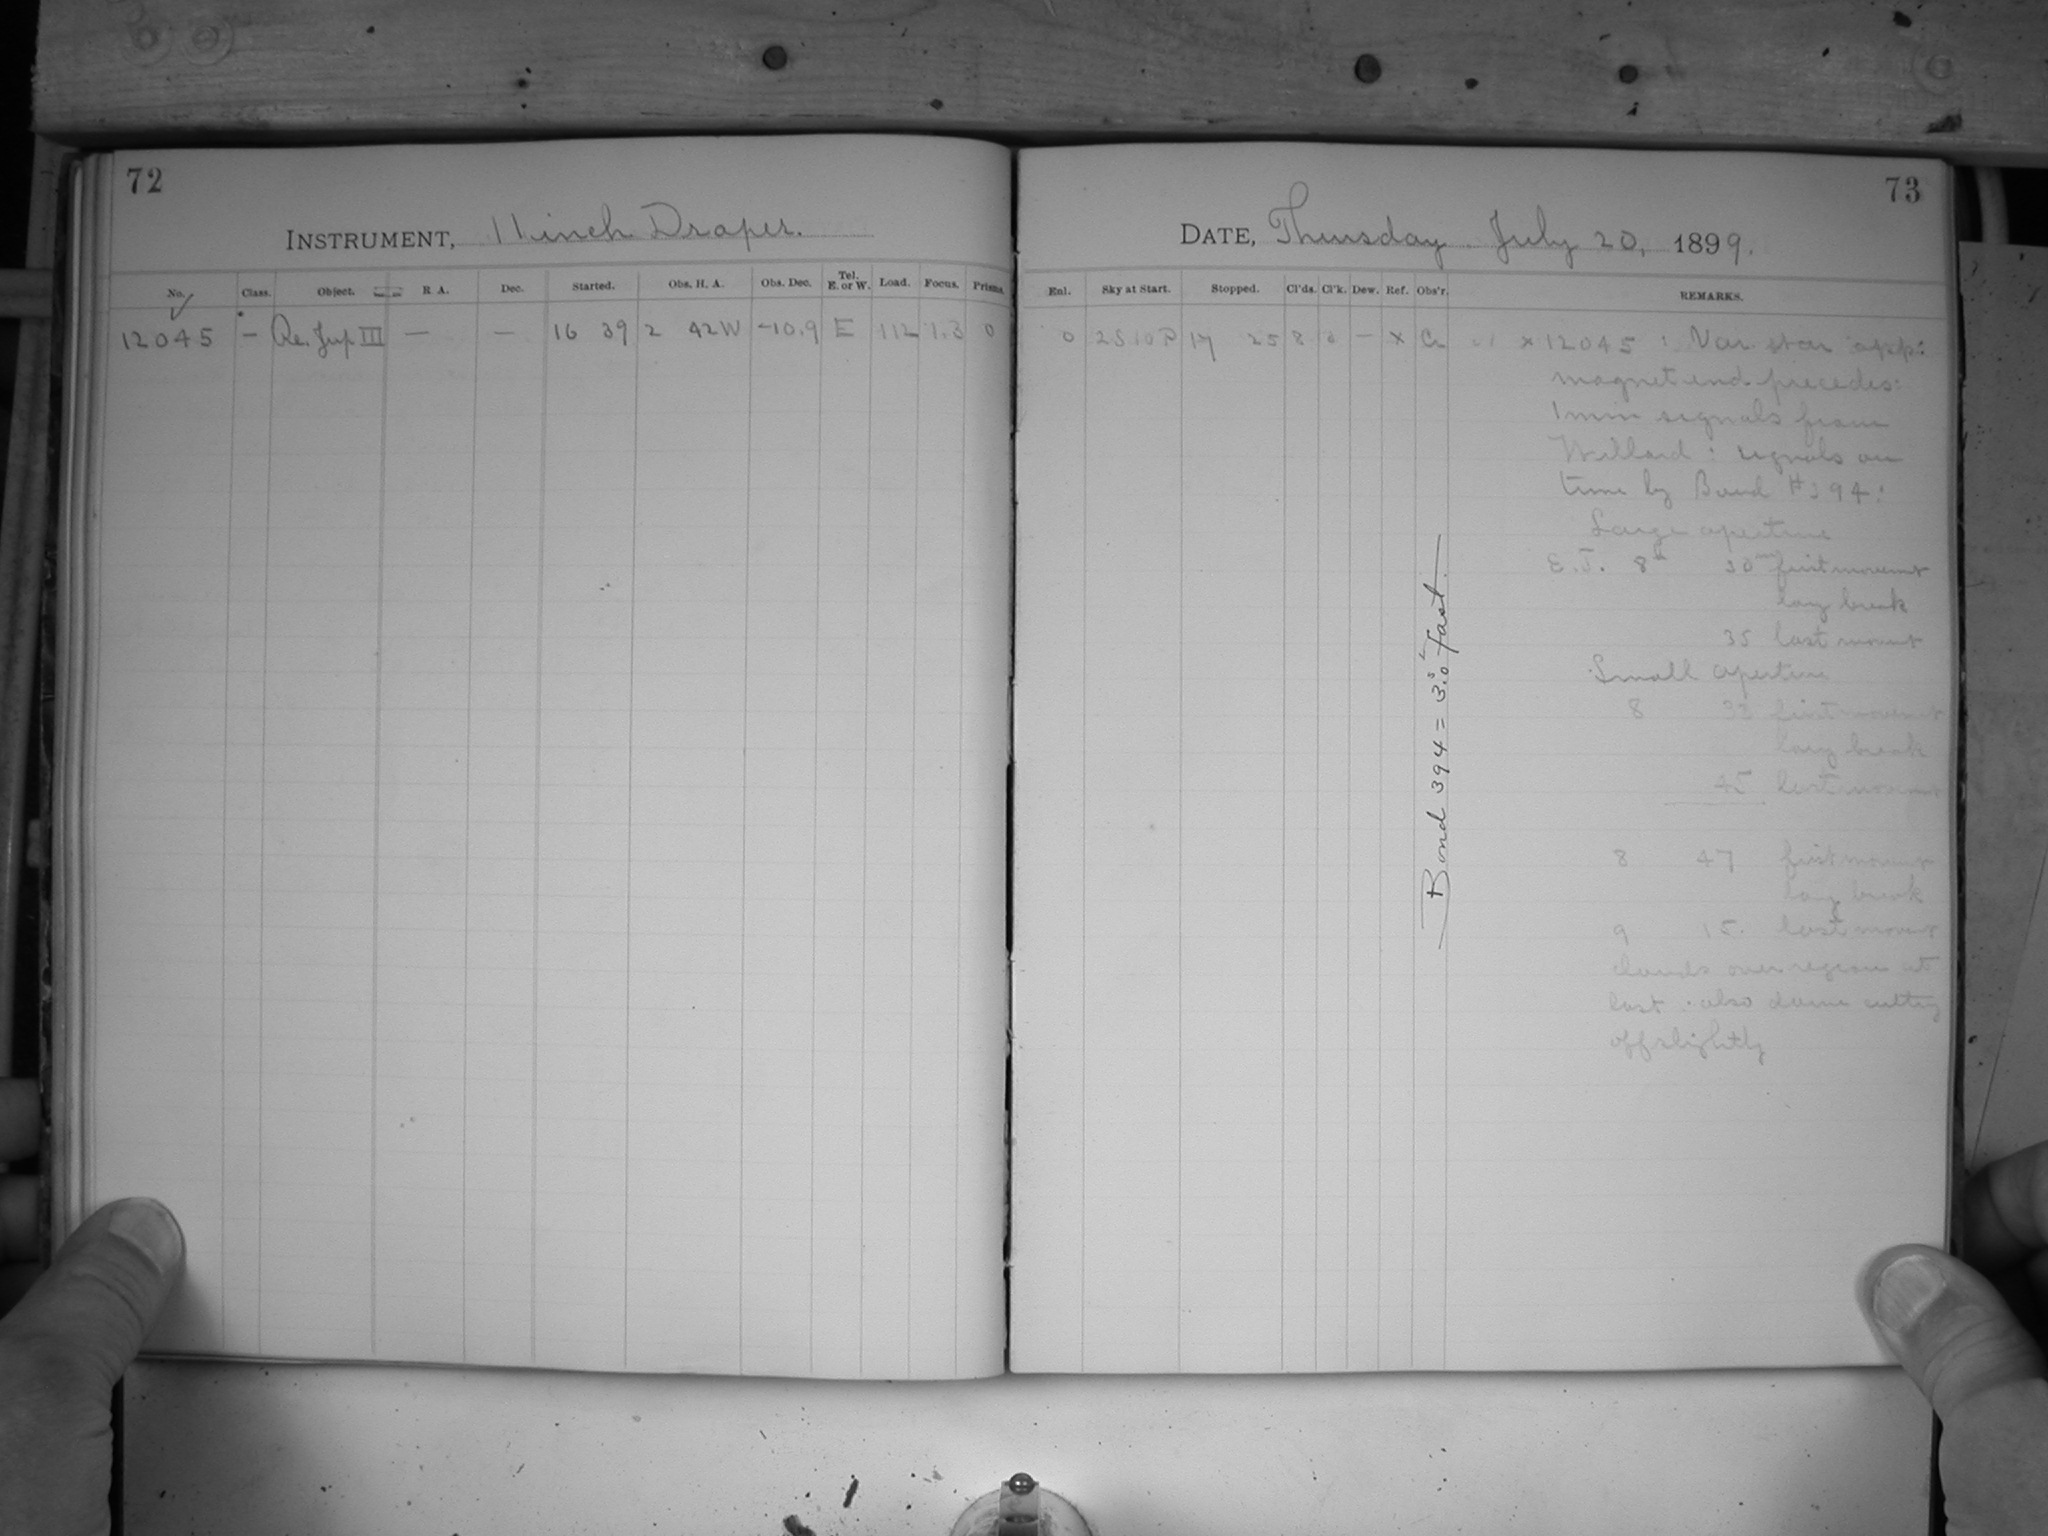 72
INSTRUMENT, 11 inch Draper.
No. Class. Object. R. A. Dec. Started. Obs. H. A. Obs. Dec. Tel. E. or W. Load. Focus. Prisms.
12045 – Re. Jup III — — 16 39 2 42W -10.9 E 112 1.3 0
73
DATE, Thursday. July 20, 1899.
Enl. Sky at Start. Stopped. Cl'ds. Cl'k. Dew. Ref. Obs'r. REMARKS.
0 2S10P 17 25 8 – x x 12045 : Var. star app:
magnet end precedes:
1 min signals from
Willard : signals on
time by Bond #394:
Large aperture
E.T. 8h 30m first movemnt
long break
35 last movmt
Small aperture
8 first movemnt
long break
45 last movemnt
8 47 first movemnt
long break
9 15. last movemnt
clouds over region at
last . also dome cutting
off slightly
Bond 394 = 3.0s fast